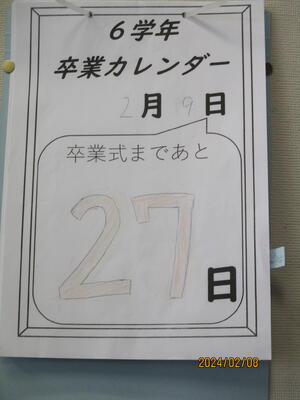 6学年
卒業カレンダー
2月9日
卒業式まであと
27日
2024/02/08